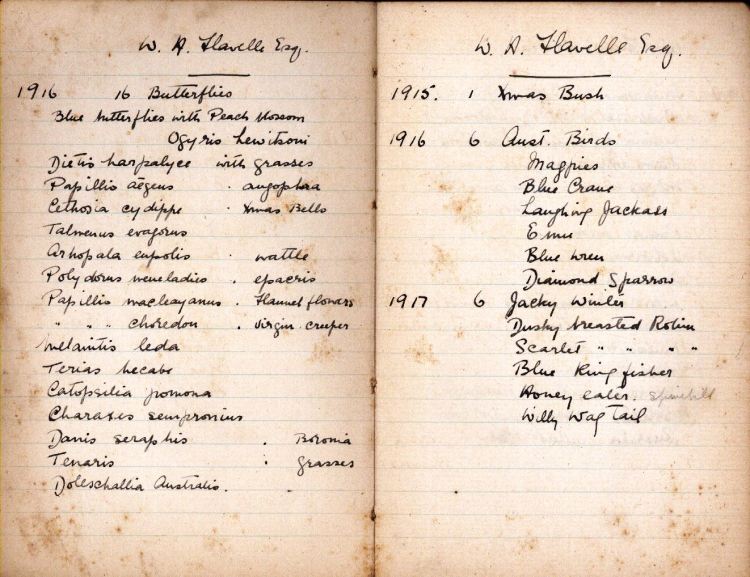 W. A. Flavelle Esq.
1916 16 Butterflies
Blue butterflies with Peach blossom
Ogyris hewitsoni
Dietis harpalyce with grasses
Papillio aegeus . angophora
Cethosia cydippe . Xmas Bells
Talmenus evagorus
Arhopala eupolis . wattle
Polydorus . epacris
Papillio macleayanus . Flannel flowers
" " . choredon . virgin. creeper
Melanitis leda
Terias hecabe
Catopsilia pomona
Charaxes sempronius
Danis seraphis . Boronia
Tenaris . grasses
Doleschallia Australis.
W. A. Flavelle Esq.
1915. 1 Xmas Bush
1916 6 Aust. Birds
Magpies
Blue Crane
Laughing Jackass
Emu
Blue Wren
Diamond Sparrow
1917 6 Jacky Winter
Dusky breasted Robin
Scarlet " " " "
Blue Kingfisher
Honey eater. spinebill
Willy Wag Tail